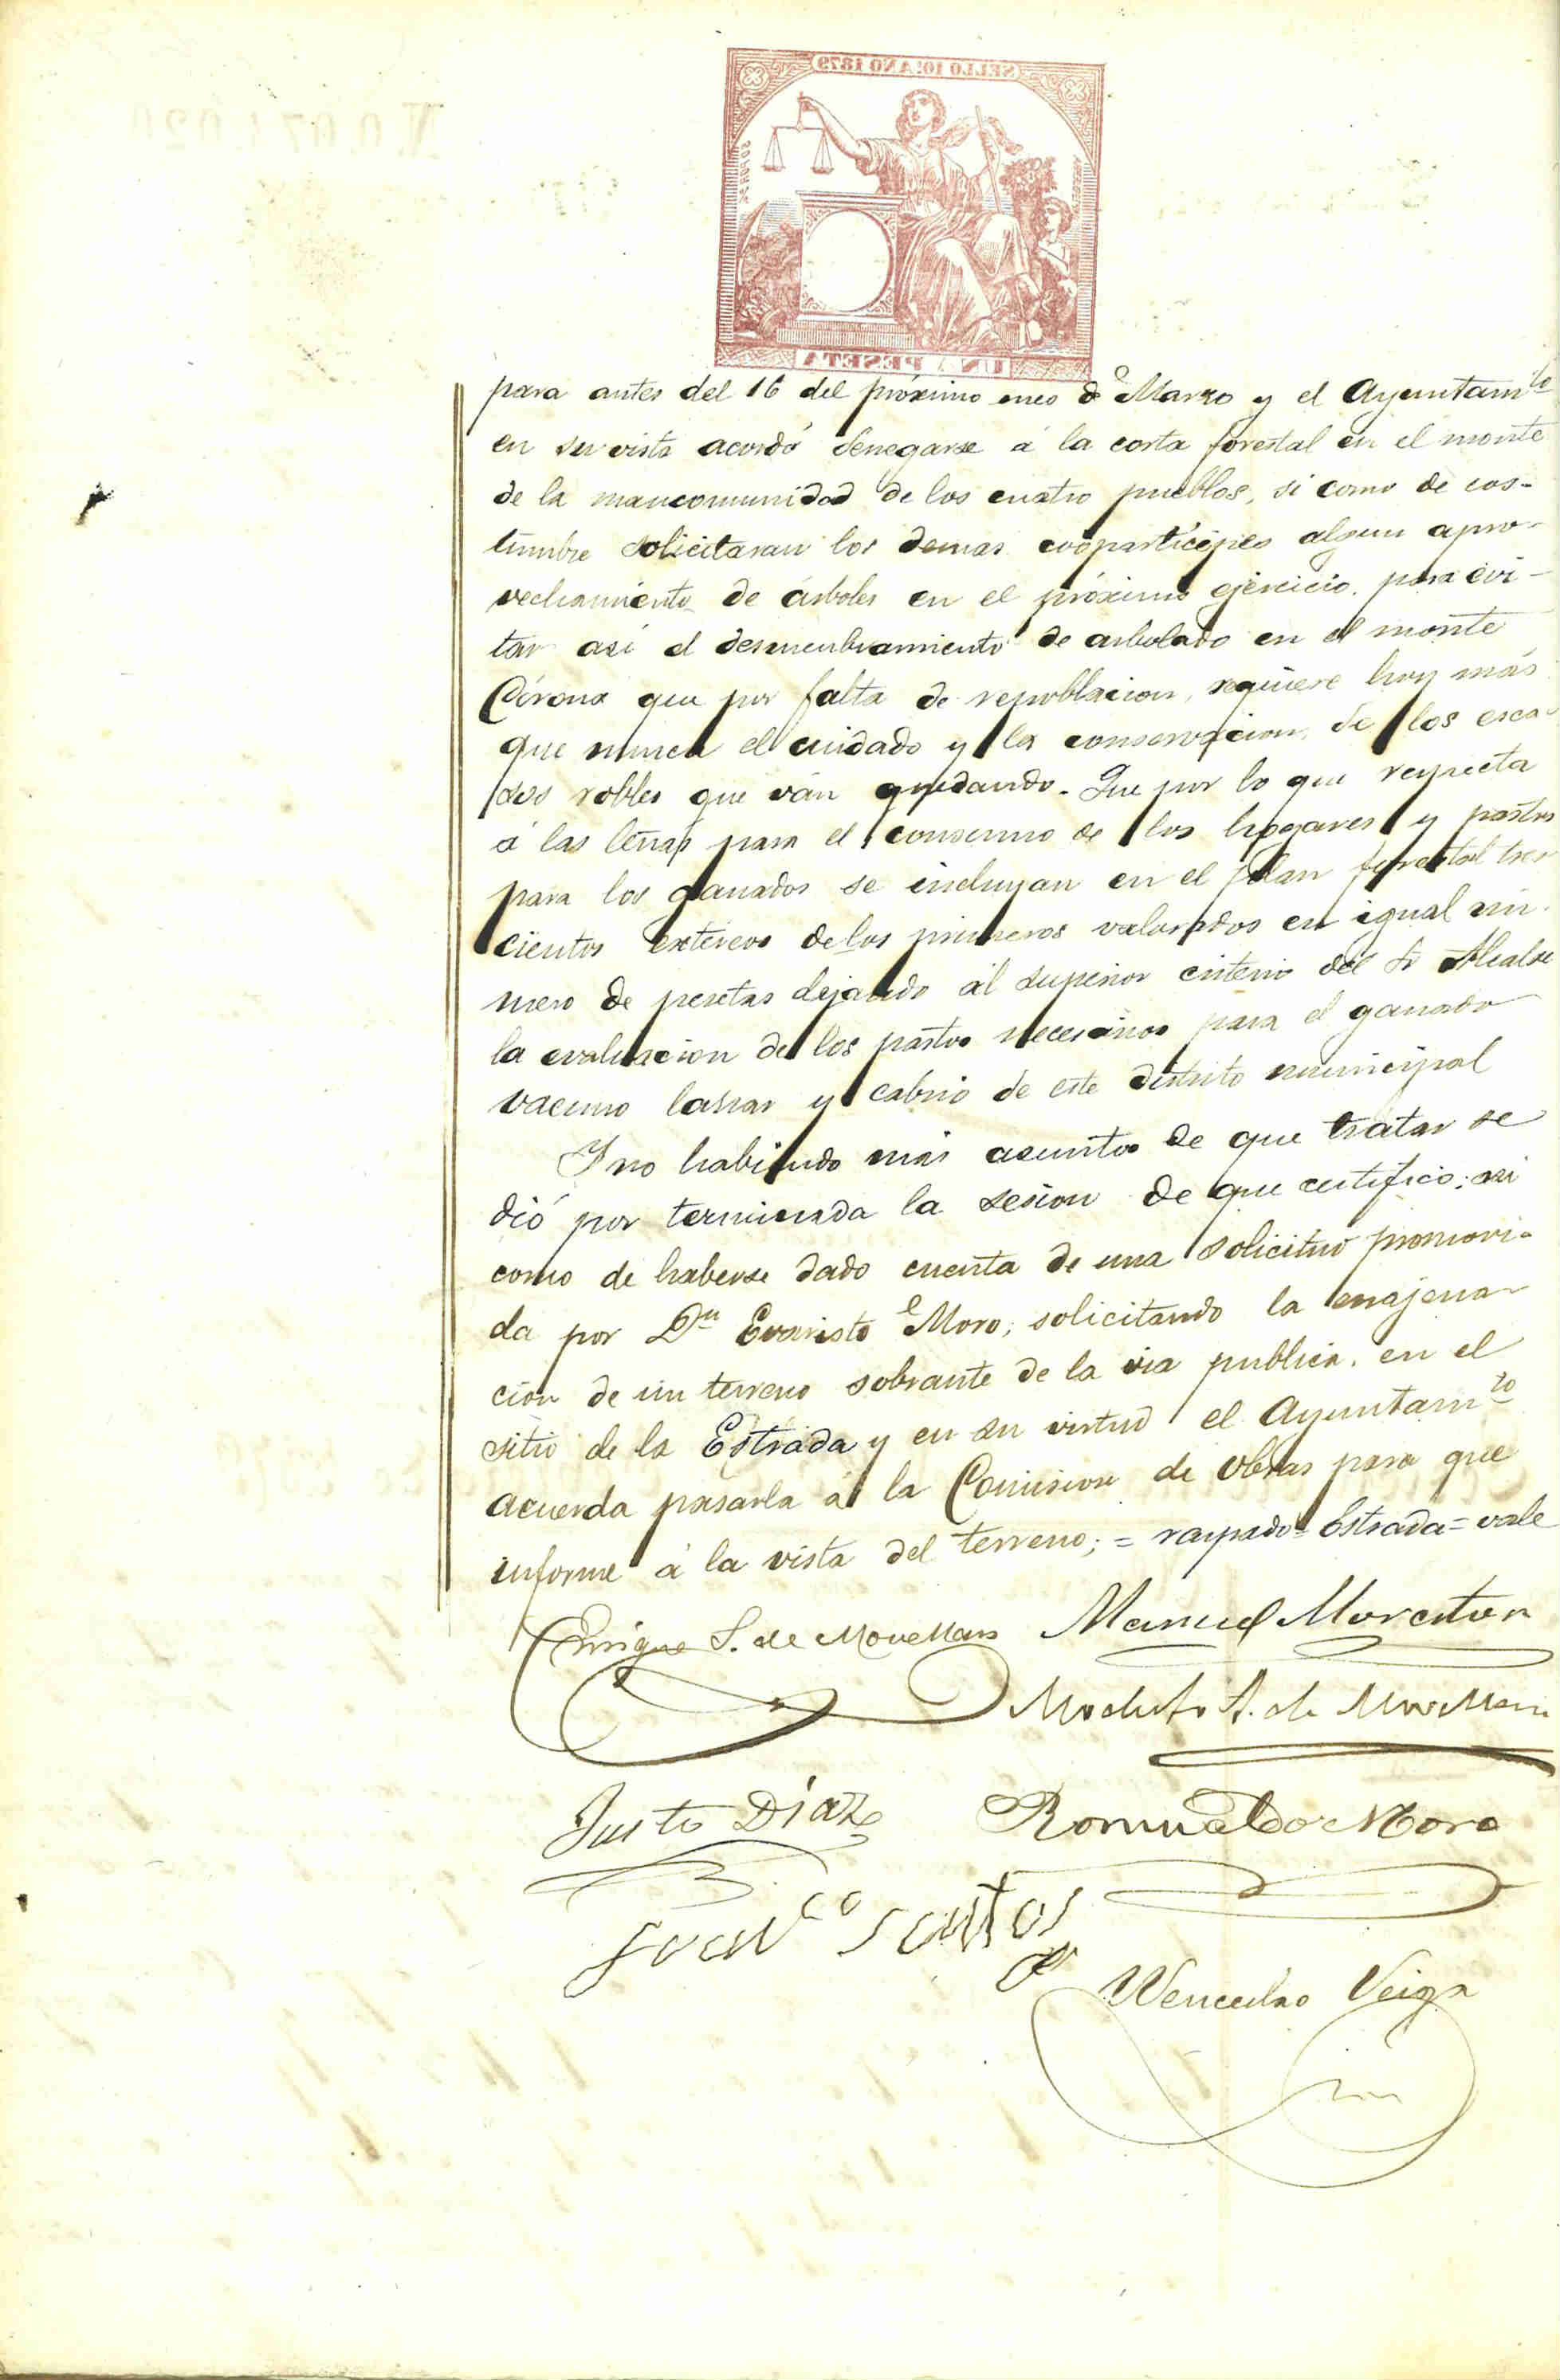 SELLO 10º AÑO 1879
UNA PESETA
para antes del 16 del próximo mes de Marzo y el Ayuntamto
en su vista acordó denegarse á la corta forestal en el monte
de la mancomunidad de los cuatro pueblos, si como de cos-
tumbre solicitaran los demas coopartícipes algun apro-
vechamiento de árboles en el próximo ejercicio, para evi-
tar asi el desmembramiento de arbolado en el monte
Córona que por falta de repoblacion, requiere hoy más
que nunca el cuidado y la conservacion de los esca-
sos robles que ván quedando. Que por lo que respecta
á las leñas para el consumo de los hogares y pastos
para los ganados se incluyan en el plan forestal tres
cientos estéreos de los primeros valorados en igual nú-
mero de pesetas dejando al superior criterio del Sr Alcalde
la evaluacion de los pastos necesarios para el ganado
vacuno lanar y cabrio de este distrito municipal
Y no habiendo más asuntos de que tratar se
dió por terminada la sesion de que certifico; asi
como de haberse dado cuenta de una solicitud promovi-
da por Dn Evaristo Moro, solicitando la enajena-
cion de un terreno sobrante de la via publica, en el
sitio de la Estrada y en su virtud el Ayuntamto
acuerda pasarla á la Comision de obras para que
informe á la vista del terreno; = raspado = Estrada = vale
Enrique S. de Movellan Manuel Morantes
Modesto S. de Movellan
Justo Díaz Romualdo Moro
Franco Santos
Wenceslao Veiga